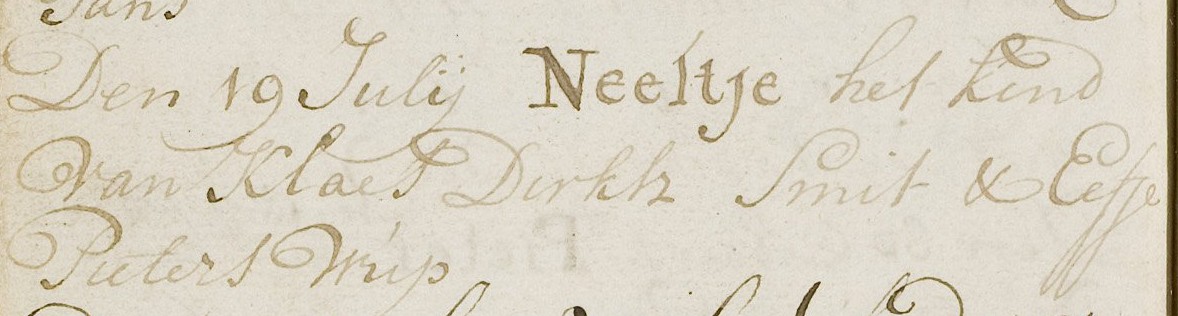 Jans
Den 19 Julij Neeltje het kind
van Klaes Dirksz Smit & Eefje
Pieters Wuip